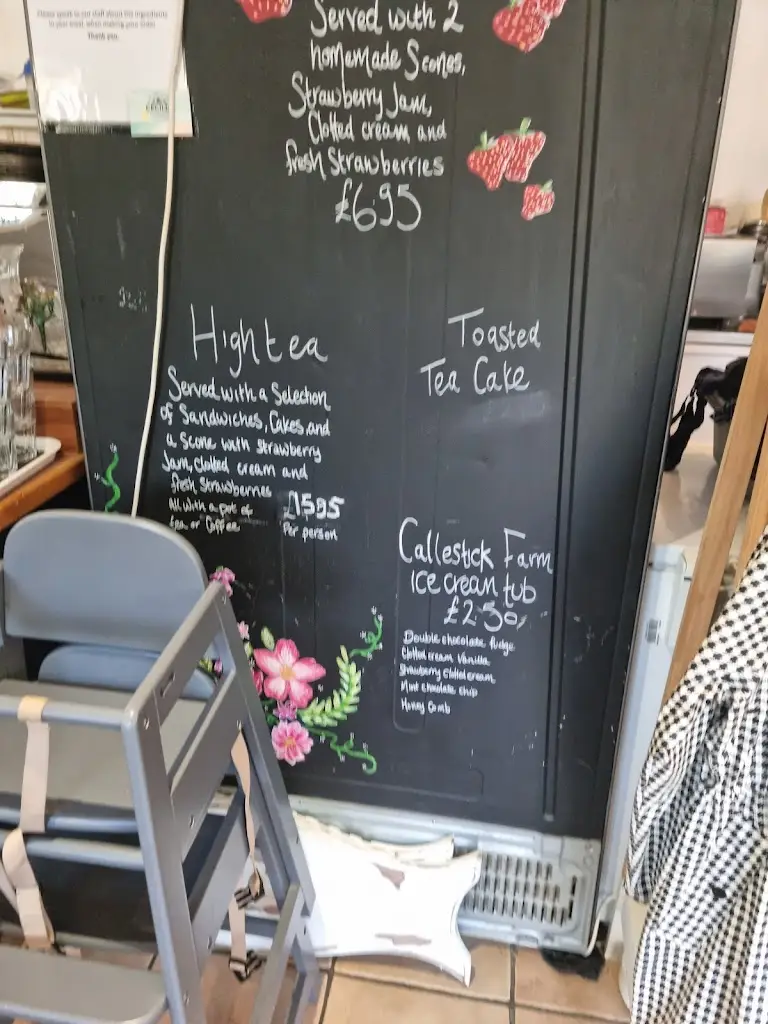 Please speak to our staff about the ingredients
in your meal, when making your order.
Thank you.
Served with 2
homemade Scones,
Strawberry Jam,
Clotted cream and
fresh Strawberries
£6.95
High tea
Served with a Selection
of Sandwiches, Cakes, and
a Scone with strawberry
Jam, Clotted cream and
fresh Strawberries
All with a pot of
tea or Coffee
£15.95
Per person
Toasted
Tea Cake
Callestick Farm
ice cream tub
£2.50
Double chocolate fudge
Clotted cream Vanilla
Strawberry Clotted cream
Mint chocolate chip
Honey Comb